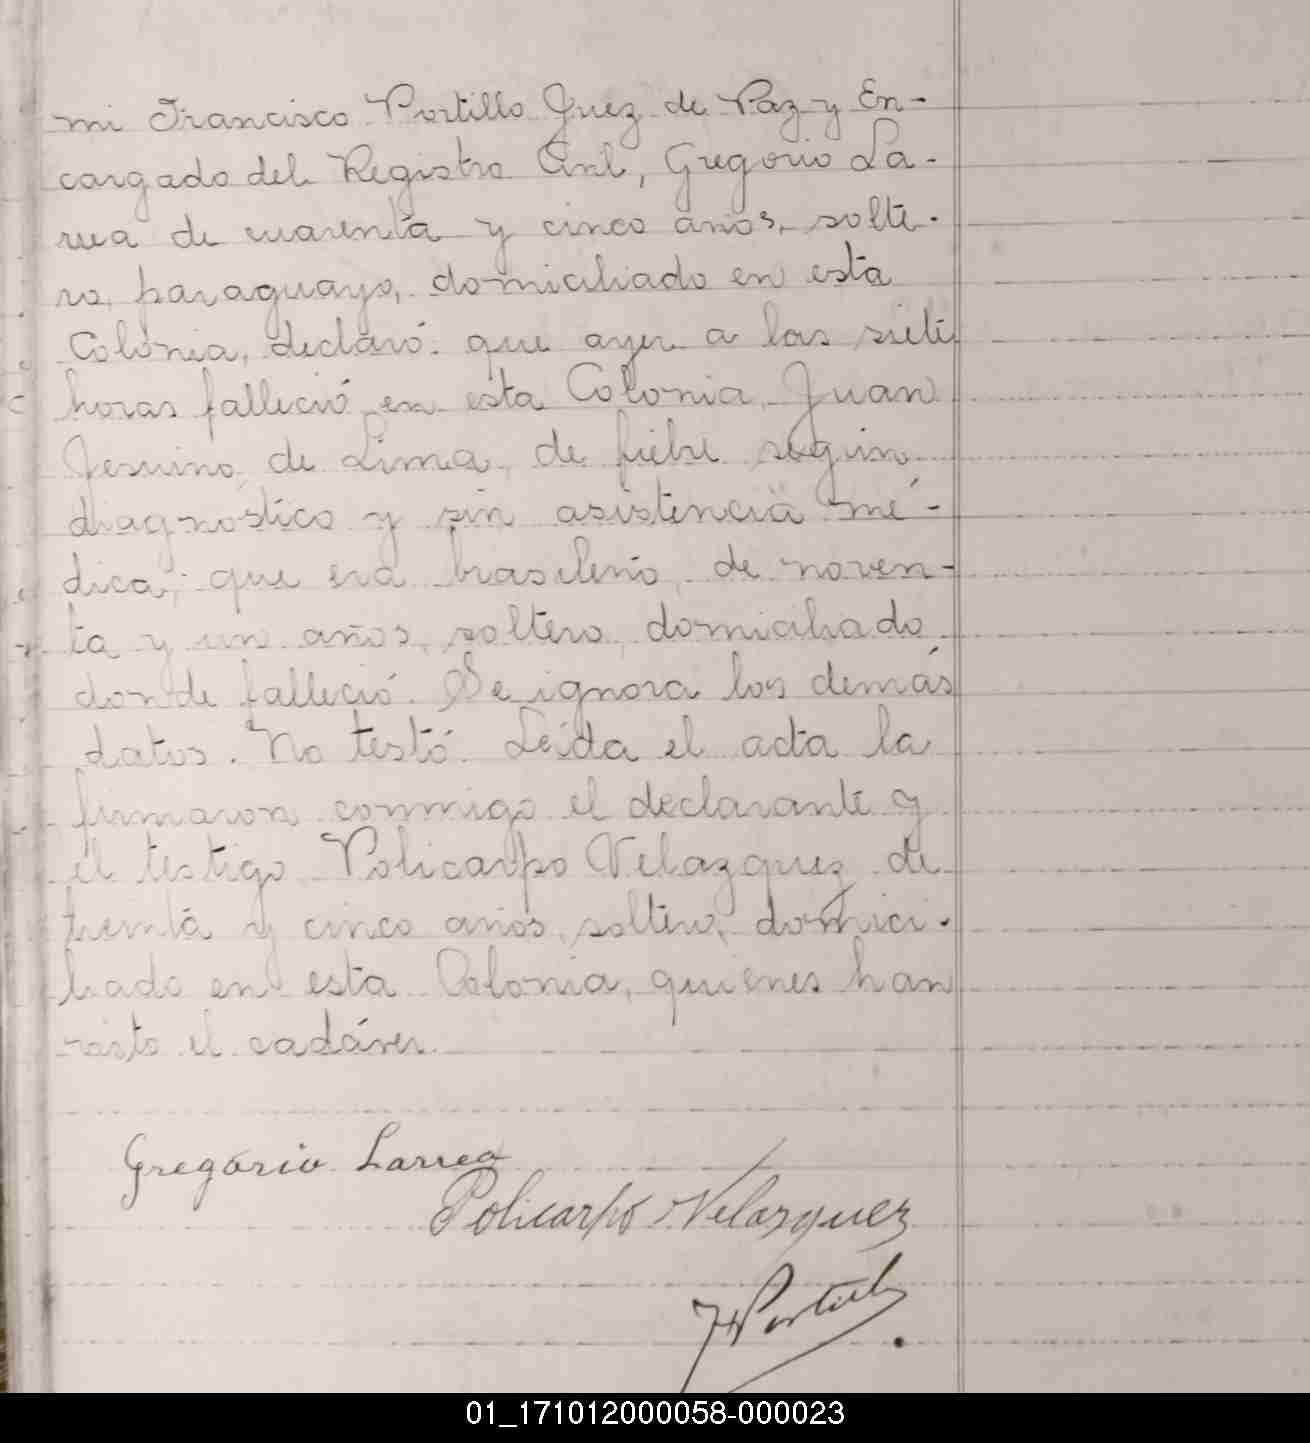 mi Francisco Portillo Juez de Paz y En-
cargado del Registro Civil, Gregorio La-
rrea de cuarenta y cinco años, solte-
ro, paraguayo, domiciliado en esta
Colonia, declaró: que ayer a las siete
horas falleció en esta Colonia, Juan
Jesuino de Lima, de fiebre según
diagnostico y sin asistencia mé-
dica; que era brasileño, de noven-
ta y un años, soltero, domiciliado
donde falleció. Se ignora los demás
datos. No testó. Leída el acta la
firmaron conmigo el declarante y
el testigo Policarpo Velazquez de
treinta y cinco años, soltero, domici-
liado en esta Colonia, quienes han
visto el cadáver.
Gregorio Larrea
Policarpo Velazquez
F Portillo
01_171012000058-000023